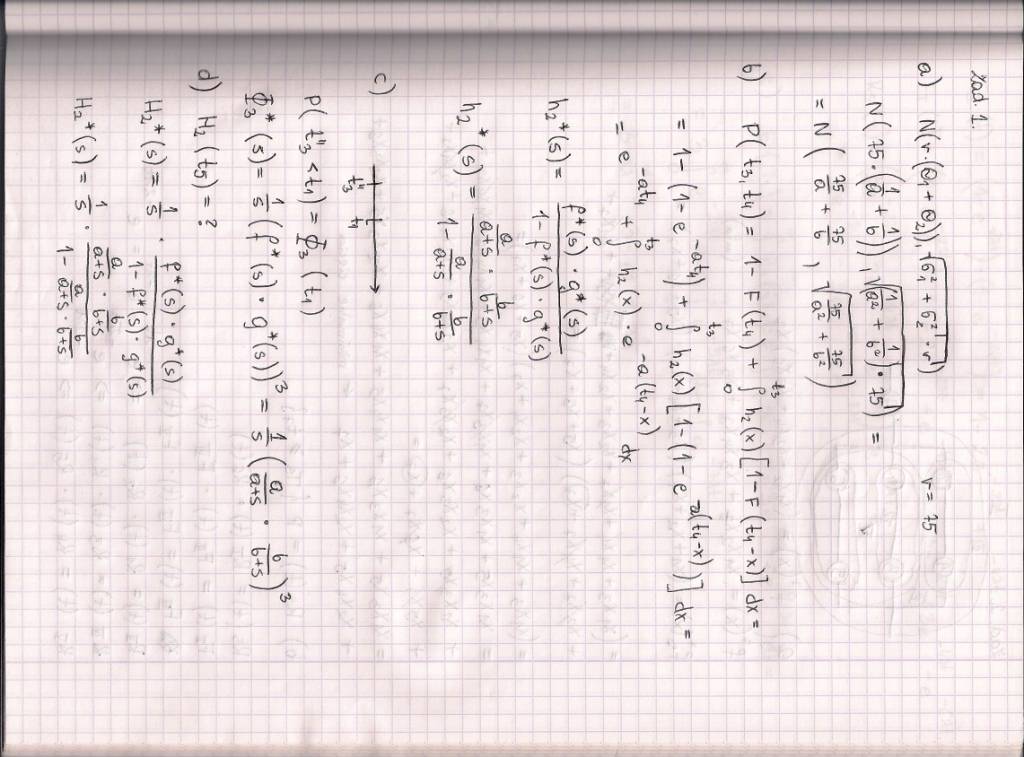 Zad. 1.
a) N(r·(Θ₁ + Θ₂), √(б₁² + б₂² · r)) r = 75
N(75·(1/a + 1/b), √((1/a² + 1/b²)·75)) =
= N(75/a + 75/b, √(75/a² + 75/b²))
b) P(t₃, t₄) = 1 - F(t₄) + ∫₀^t₃ h₂(x)[1 - F(t₄-x)] dx =
= 1 - (1 - e^(-at₄)) + ∫₀^t₃ h₂(x)[1 - (1 - e^(-a(t₄-x)))] dx =
= e^(-at₄) + ∫₀^t₃ h₂(x) · e^(-a(t₄-x)) dx
h₂*(s) = (f*(s) · g*(s)) / (1 - f*(s) · g*(s))
h₂*(s) = (a/(a+s) · b/(b+s)) / (1 - a/(a+s) · b/(b+s))
c) t₃'' t₁
P(t₃'' < t₁) = Φ₃(t₁)
Φ₃*(s) = 1/s (f*(s) · g*(s))³ = 1/s (a/(a+s) · b/(b+s))³
d) H₂(t₅) = ?
H₂*(s) = 1/s · (f*(s) · g*(s)) / (1 - f*(s) · g*(s))
H₂*(s) = 1/s · (a/(a+s) · b/(b+s)) / (1 - a/(a+s) · b/(b+s))